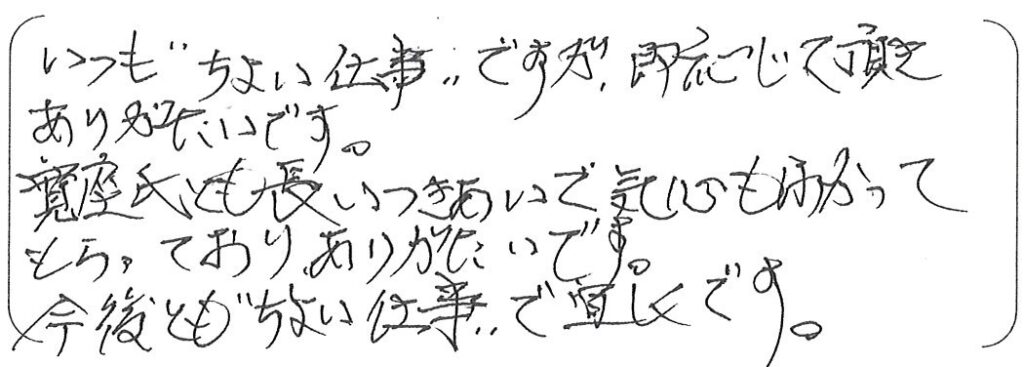 いつも“ちょい仕事”ですが、即応じて頂き
ありがたいです。
寛座氏とも長いつきあいで気心もわかって
もらっており、ありがたいです。
今後とも“ちょい仕事”で宜しくです。